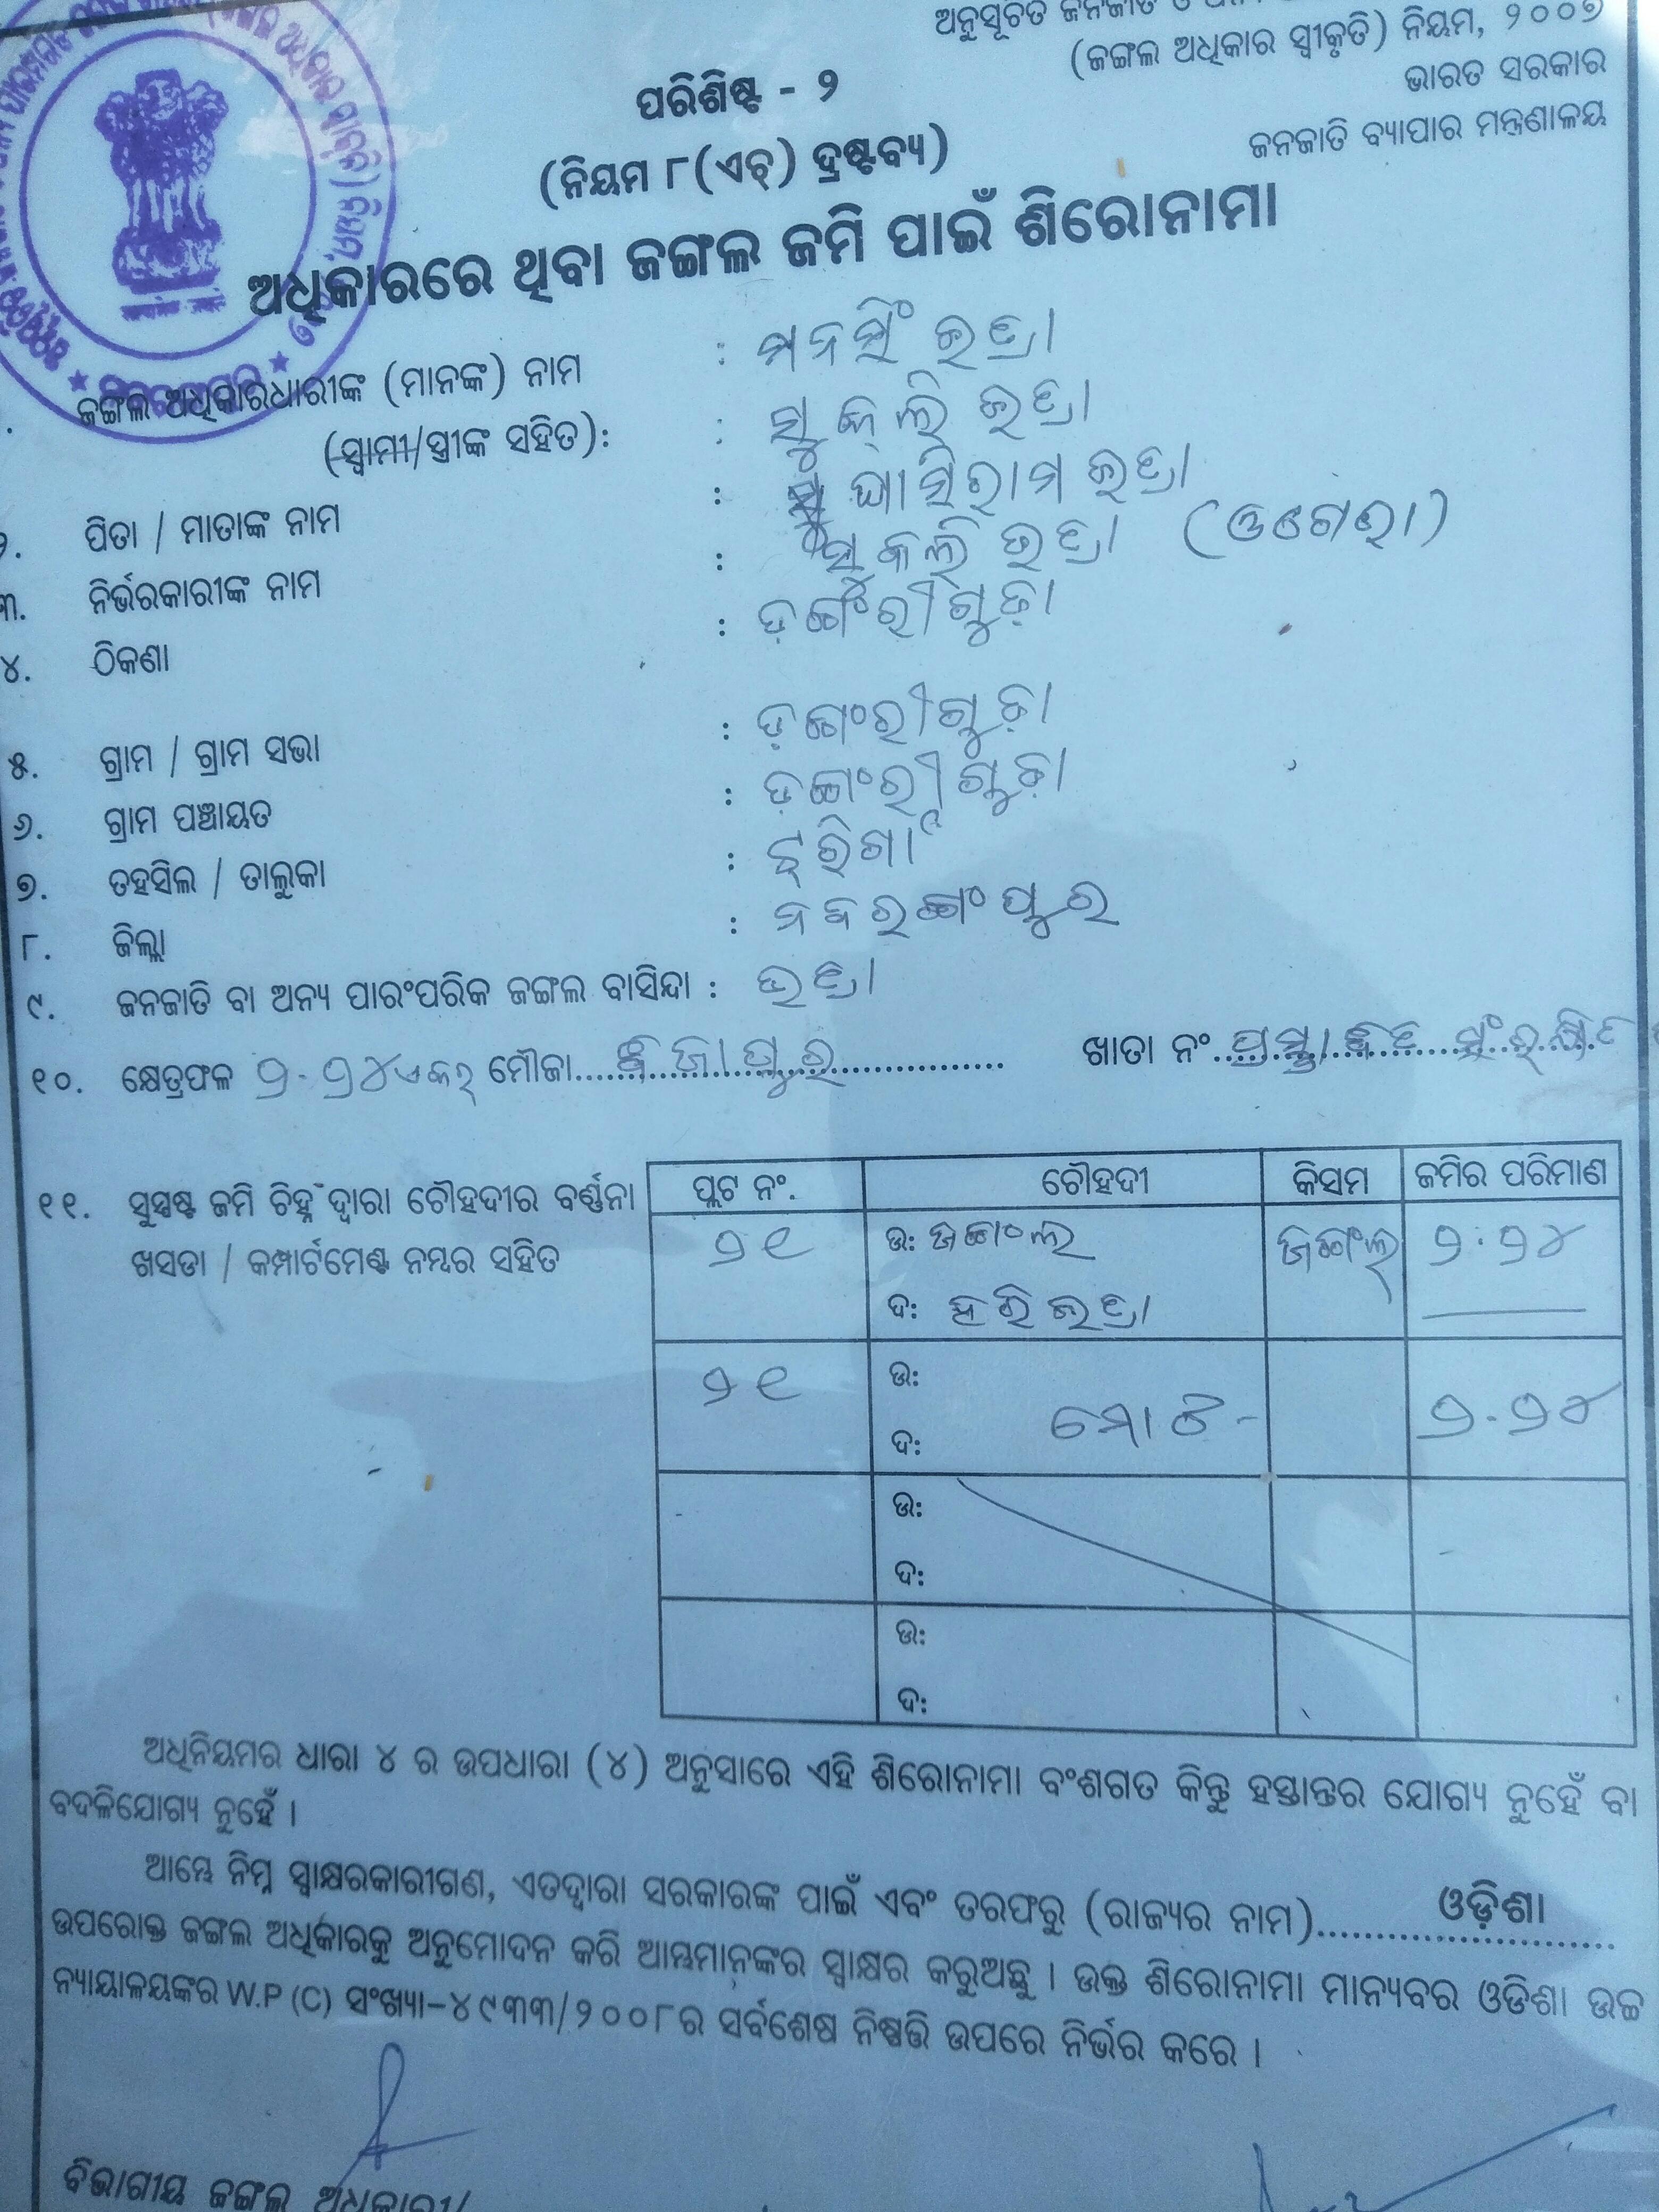 ଅନୁସୂଚିତ ଜନଜାତି ଓ
(ଜଙ୍ଗଲ ଅଧିକାର ସ୍ୱୀକୃତି) ନିୟମ, ୨୦୦୭
ଭାରତ ସରକାର
ଜନଜାତି ବ୍ୟାପାର ମନ୍ତ୍ରଣାଳୟ
ପରିଶିଷ୍ଟ - ୨
(ନିୟମ ୮(ଏଚ୍) ଦ୍ରଷ୍ଟବ୍ୟ)
ଅଧିକାରରେ ଥିବା ଜଙ୍ଗଲ ଜମି ପାଇଁ ଶିରୋନାମା
ଜଙ୍ଗଲ ଅଧିକାରଧାରୀଙ୍କ (ମାନଙ୍କ) ନାମ : ମନସିଂ ଭତ୍ରା
(ସ୍ୱାମୀ/ସ୍ତ୍ରୀଙ୍କ ସହିତ): : ଭତ୍ରା
୨. ପିତା / ମାତାଙ୍କ ନାମ : ଘାସିରାମ ଭତ୍ରା
୩. ନିର୍ଭରକାରୀଙ୍କ ନାମ : ସୁକଲି ଭତ୍ରା (ଓଗେରା)
୪. ଠିକଣା : ଡ଼ଙ୍ଗେଂରୀଗୁଡ଼ା
୫. ଗ୍ରାମ / ଗ୍ରାମ ସଭା : ଡ଼ଙ୍ଗେଂରୀଗୁଡ଼ା
୬. ଗ୍ରାମ ପଞ୍ଚାୟତ : ଡ଼ଙ୍ଗେଂରୀଗୁଡ଼ା
୭. ତହସିଲ / ତାଲୁକା : ଝରିଗାଁ
୮. ଜିଲ୍ଲା : ନବରଙ୍ଗଂପୁର
୯. ଜନଜାତି ବା ଅନ୍ୟ ପାରଂପରିକ ଜଙ୍ଗଲ ବାସିନ୍ଦା : ଭତ୍ରା
୧୦. କ୍ଷେତ୍ରଫଳ ୨.୨୪ଏକର୍ ମୌଜା ବିଜାପୁର ଖାତା ନଂ. ପ୍ରସ୍ତାବିତ ସଂରକ୍ଷିତ
୧୧. ସୁସ୍ପଷ୍ଟ ଜମି ଚିହ୍ନ ଦ୍ୱାରା ଚୌହଦୀର ବର୍ଣ୍ଣନା
ଖସଡା / କମ୍ପାର୍ଟମେଣ୍ଟ ନମ୍ବର ସହିତ
ପ୍ଲଟ ନଂ. ଚୌହଦୀ କିସମ ଜମିର ପରିମାଣ
୨୧ ଉ: ଜଙ୍ଗଂଲ ଜଙ୍ଗଂଲ୍ ୨.୨୪
ଦ: ହରି ଭତ୍ରା
୨୧ ଉ: ୨.୨୪
ଦ: ମୋଟ -
ଉ:
ଦ:
ଉ:
ଦ:
ଅଧିନିୟମର ଧାରା ୪ ର ଉପଧାରା (୪) ଅନୁସାରେ ଏହି ଶିରୋନାମା ବଂଶଗତ କିନ୍ତୁ ହସ୍ତାନ୍ତର ଯୋଗ୍ୟ ନୁହେଁ ବା
ବଦଳିଯୋଗ୍ୟ ନୁହେଁ ।
ଆମ୍ଭେ ନିମ୍ନ ସ୍ୱାକ୍ଷରକାରୀଗଣ, ଏତଦ୍ୱାରା ସରକାରଙ୍କ ପାଇଁ ଏବଂ ତରଫରୁ (ରାଜ୍ୟର ନାମ) ଓଡ଼ିଶା
ଉପରୋକ୍ତ ଜଙ୍ଗଲ ଅଧିକାରକୁ ଅନୁମୋଦନ କରି ଆମ୍ଭମାନଙ୍କର ସ୍ୱାକ୍ଷର କରୁଅଛୁ । ଉକ୍ତ ଶିରୋନାମା ମାନ୍ୟବର ଓଡିଶା ଉଚ୍ଚ
ନ୍ୟାୟାଳୟଙ୍କର W.P (C) ସଂଖ୍ୟା-୪୯୩୩/୨୦୦୮ର ସର୍ବଶେଷ ନିଷ୍ପତ୍ତି ଉପରେ ନିର୍ଭର କରେ ।
ବିଭାଗୀୟ ଜଙ୍ଗଲ ଅଧିକାରୀ/